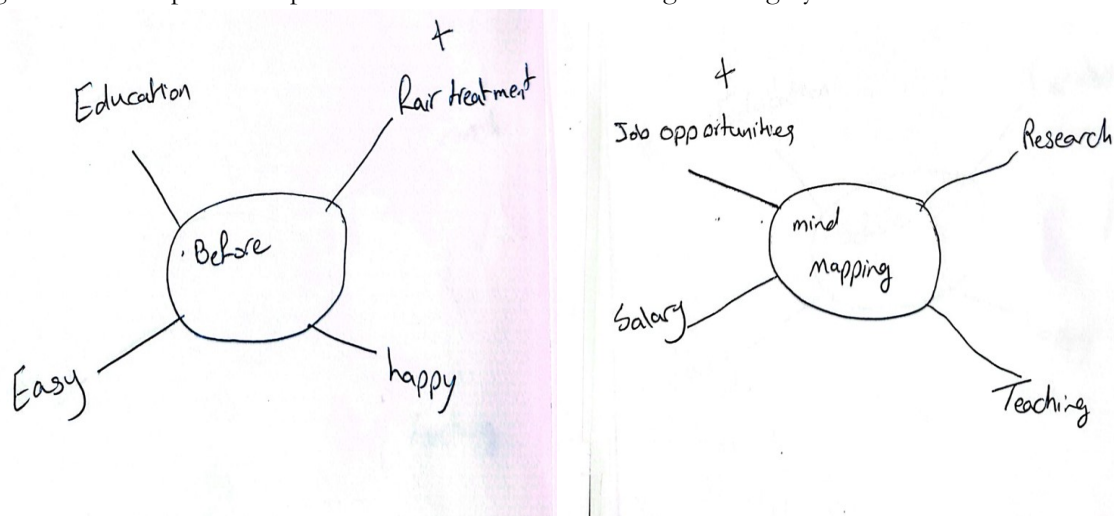 +
Education
Rair treatment
Before
Easy
happy
+
Job opportunities
Research
mind
Mapping
Salary
Teaching